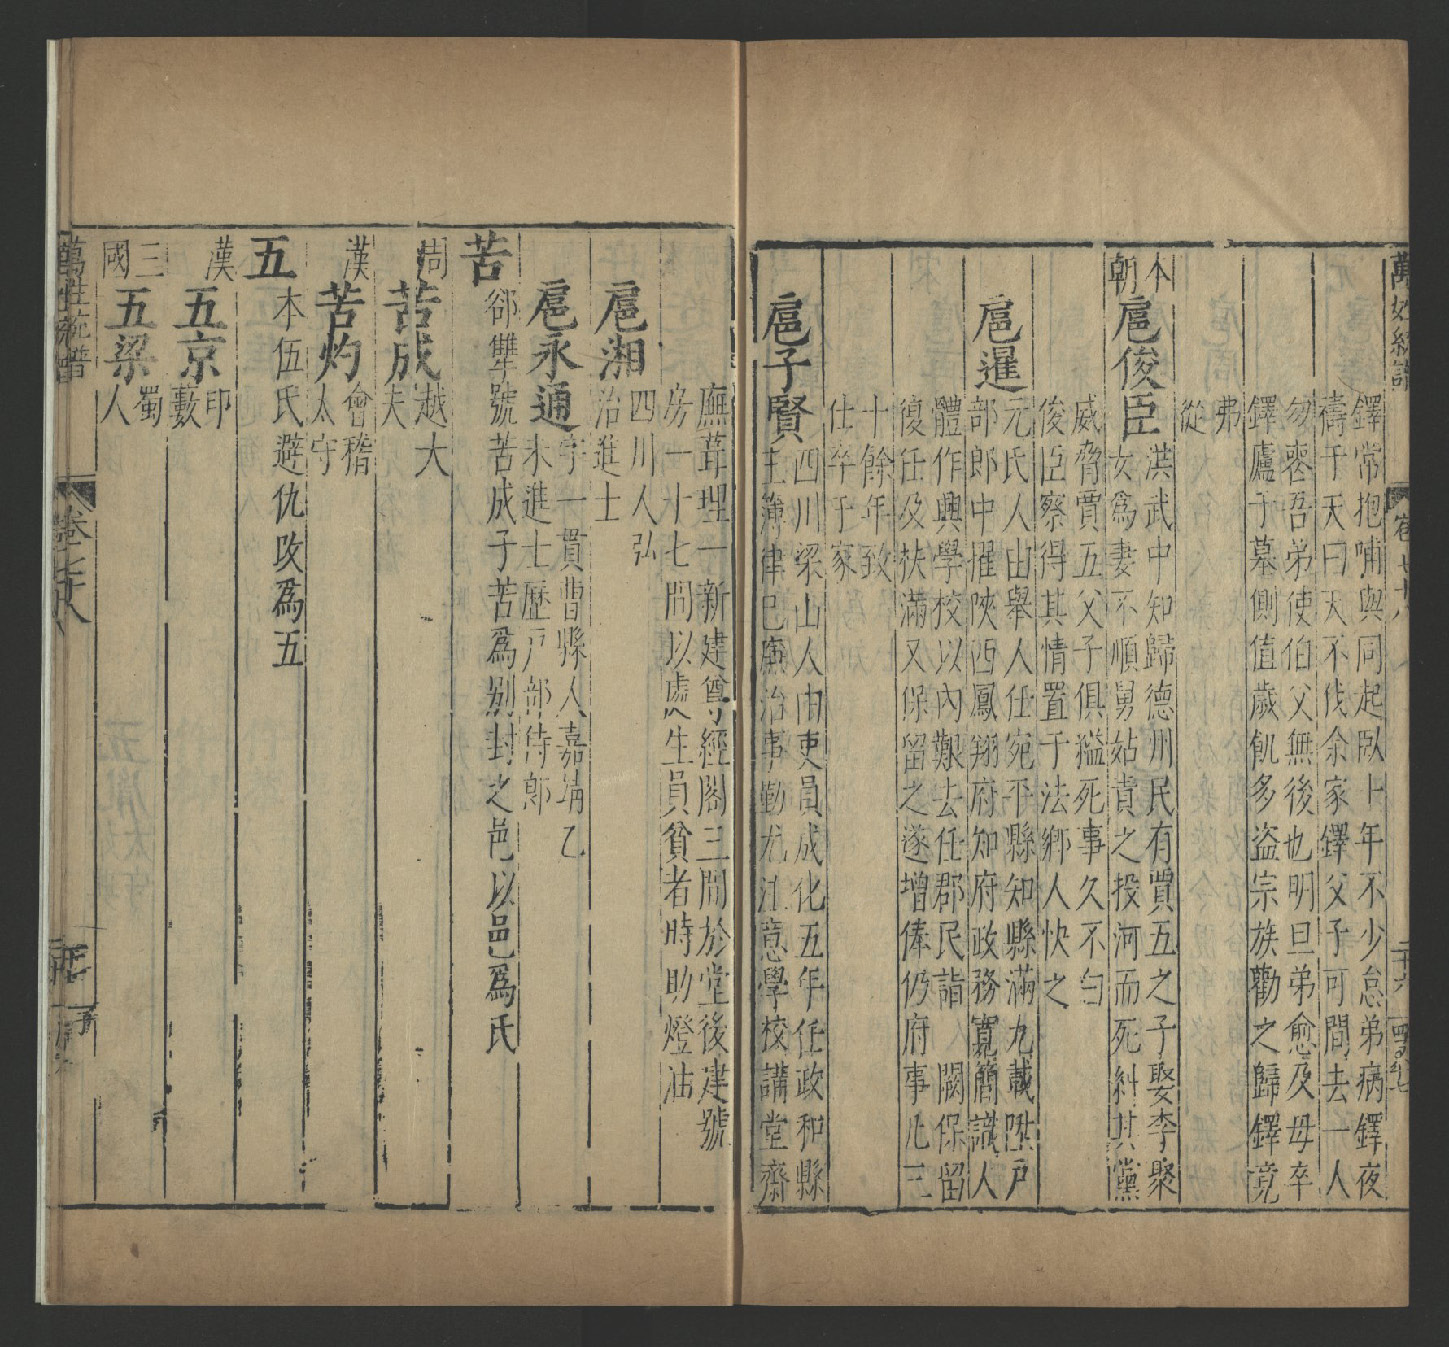 萬姓統譜 卷七十八 二十六
鐸常抱哺與同起臥十年不少怠弟病鐸夜
禱于天曰天不伐余家鐸父子可間去一人
勿喪吾弟使伯父無後也明旦弟愈及母卒
鐸廬于墓側值歲飢多盜宗族勸之歸鐸竟
弗
從
本朝
扈俊臣
洪武中知歸德州民有賈五之子娶李聚
女為妻不順舅姑責之投河而死糾其黨
威脅賈五父子俱縊死事久不白
俊臣察得其情置于法鄉人快之
扈暹
元氏人由舉人任宛平縣知縣滿九載陞戶
部郎中擢陝西鳳翔府知府政務寬簡識人
體作興學校以內艱去任郡民詣 闕保留
復任及扶滿又保留之遂增俸仍府事凡三
十餘年致
仕卒于家
扈子賢
四川梁山人由吏員成化五年任政和縣
主簿律己廉治事勤尤注意學校講堂齋
廡葺理一新建尊經閣三間於堂後建號
房一十七間以處生員貧者時助燈油
扈湘
四川人弘
治進士
扈永通
字一 貫曹縣人嘉靖乙
未進士歷戶部侍郎
苦
郤犨號苦成子苦為別封之邑以邑為氏
周
苦成
越大
夫
漢
苦灼
會稽
太守
五
本伍氏避仇改為五
漢
五京
印
藪
三國
五梁
蜀
人
萬姓統譜 卷七十八